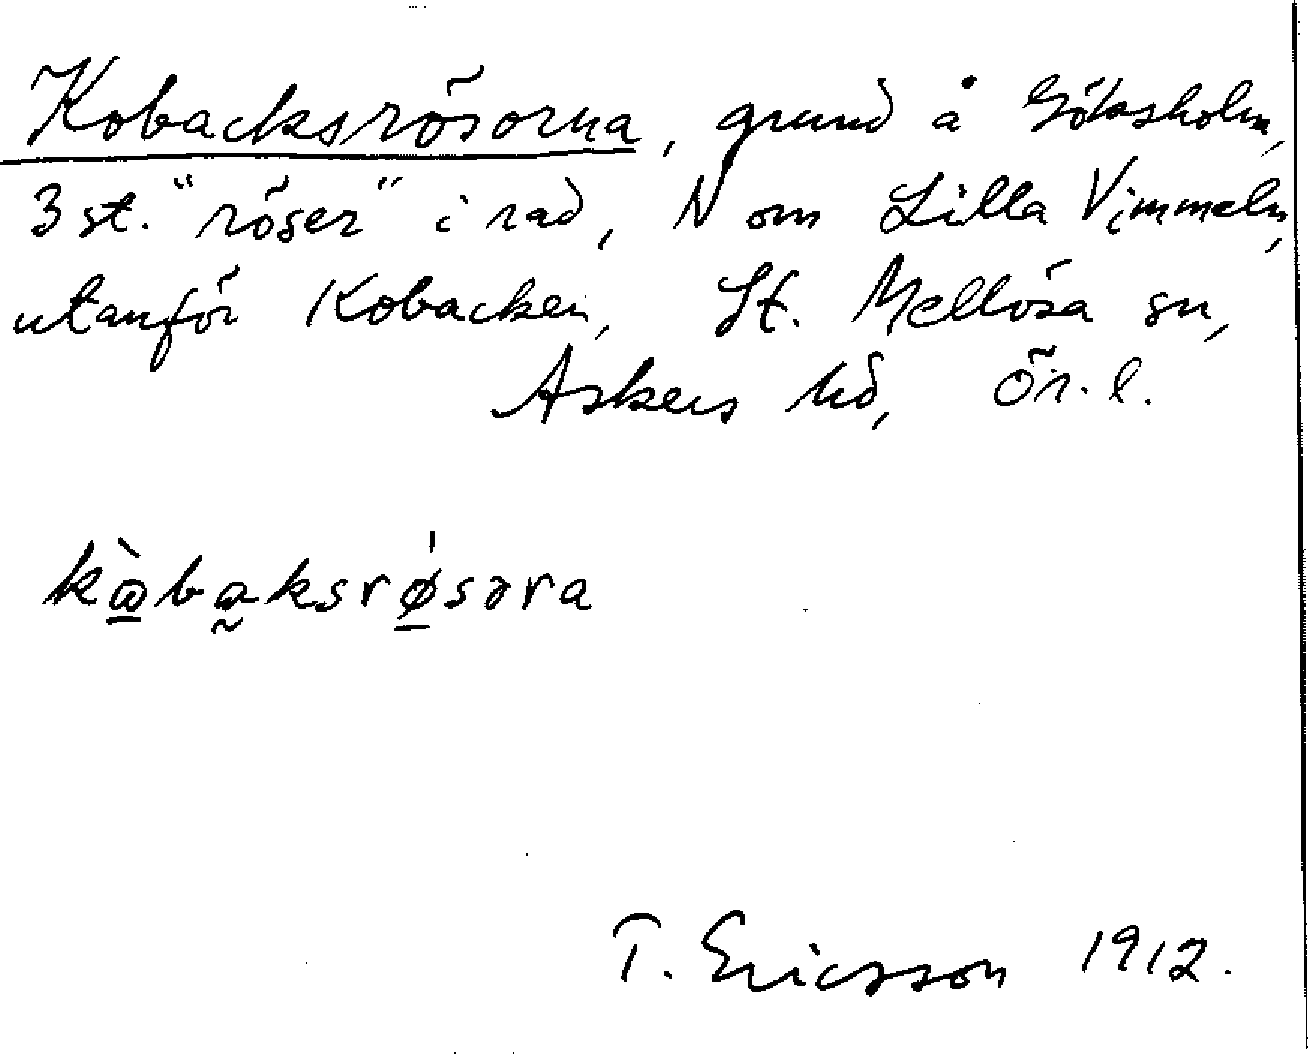 Kobacksrösorna, grund å Göksholm,
3 st. "röser" i rad, N om Lilla Vimmeln,
utanför Kobacken, St. Mellösa sn,
Askers hd, Ör. l.
kòbaksrø̍səra
T. Ericsson 1912.